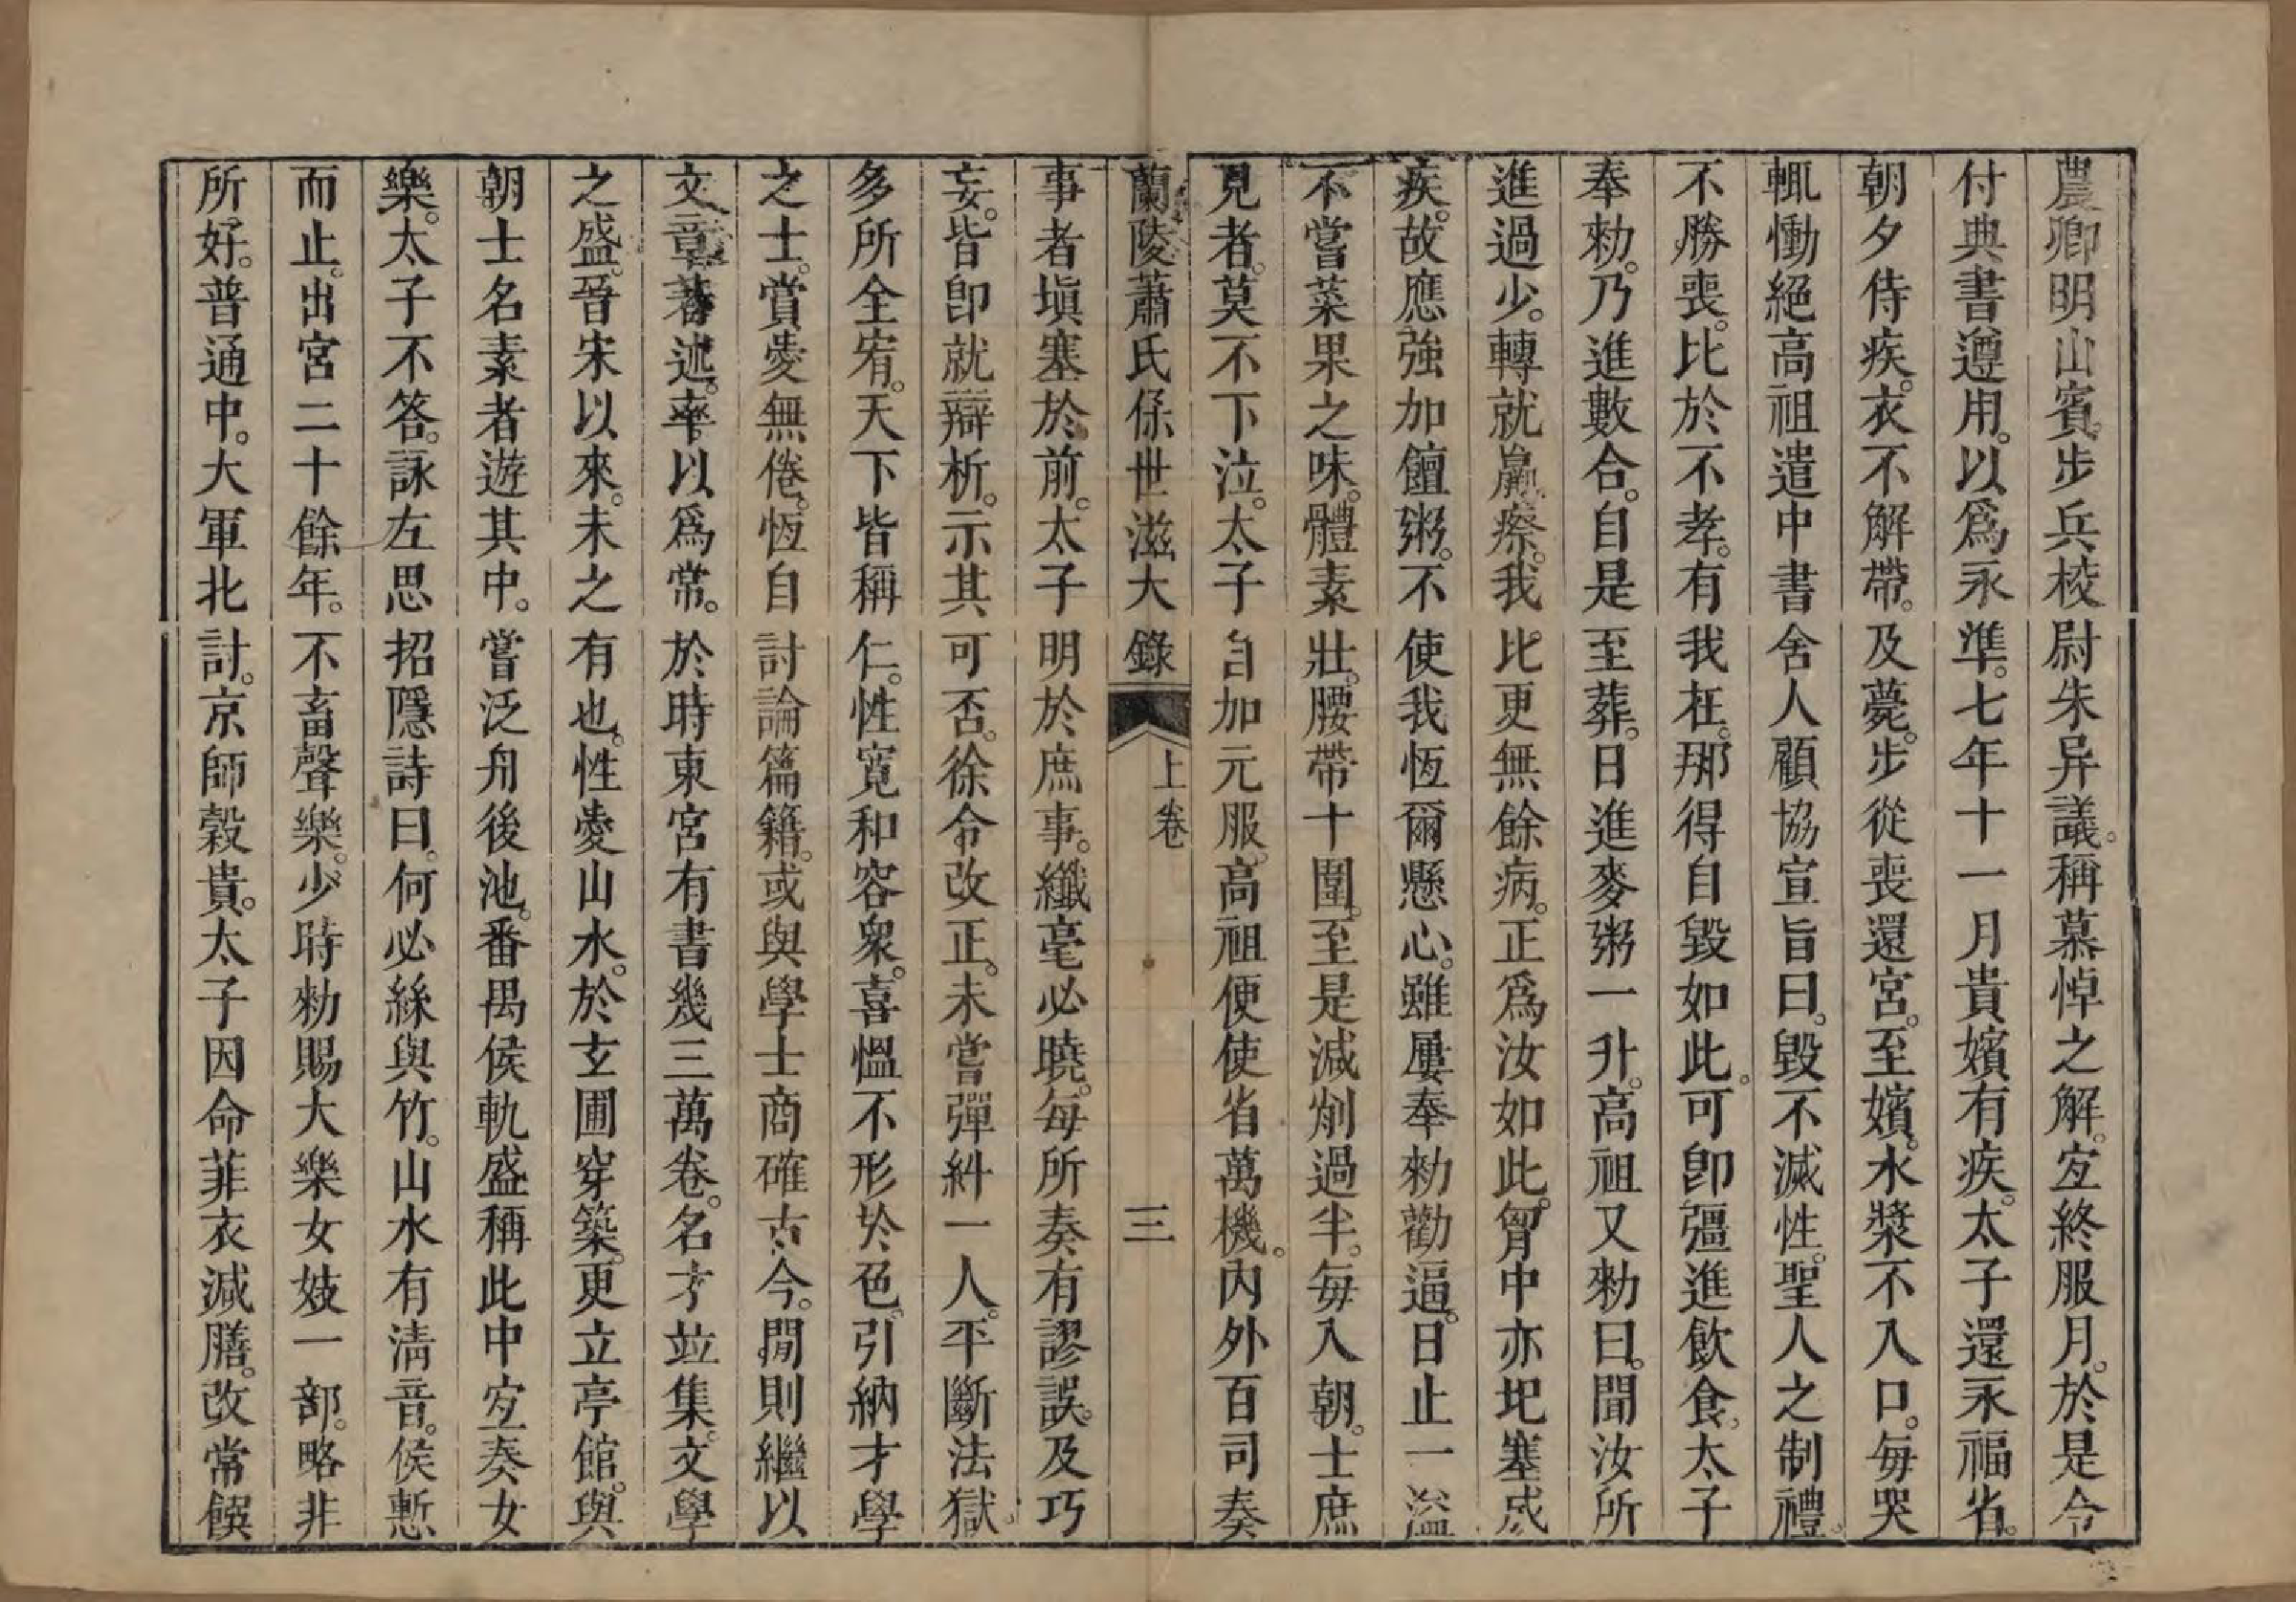 農卿明山賓。步兵校尉朱异議。稱慕悼之解。宐終服月。於是令
付典書遵用。以爲永準。七年十一月貴嬪有疾。太子還永福省。
朝夕侍疾。衣不解帶。及薨。步從喪還宮。至嬪。水漿不入口。每哭
輒慟絕高祖遣中書舍人顧協宣旨曰。毀不滅性。聖人之制禮。
不勝喪。比於不孝。有我在。那得自毀如此。可卽彊進飲食。太子
奉勑。乃進數合。自是至葬。日進麥粥一升。高祖又勑曰。聞汝所
進過少。轉就羸瘵。我比更無餘病。正爲汝如此。胷中亦圯塞成
疾。故應強加饘粥。不使我恆爾懸心。雖屢奉勑勸逼。日止一溢
不嘗菜果之味。體素壯。腰帶十圍。至是減削過半。每入朝。士庶
見者。莫不下泣。太子自加元服。高祖便使省萬機。內外百司奏
蘭陵蕭氏俢世滋大錄 上卷 三
事者塡塞於前。太子明於庶事。纖毫必曉。每所奏有謬誤。及巧
妄。皆卽就辯析。示其可否。徐令改正。未嘗彈糾一人。平斷法獄。
多所全宥。天下皆稱仁。性寬和容衆。喜慍不形於色。引納才學
之士。賞愛無倦。恆自討論篇籍。或與學士商確古今。閒則繼以
文章著述。率以爲常。於時東宮有書幾三萬卷。名才竝集。文學
之盛。晉宋以來。未之有也。性愛山水。於玄圃穿築。更立亭館。與
朝士名素者遊其中。嘗泛舟後池。番禺侯軌盛稱此中宐奏女
樂。太子不答。詠左思招隱詩曰。何必絲與竹。山水有淸音。侯慙
而止。出宮二十餘年。不畜聲樂。少時勑賜大樂女妓一部。略非
所好。普通中。大軍北討。京師穀貴。太子因命菲衣減膳。改常饌